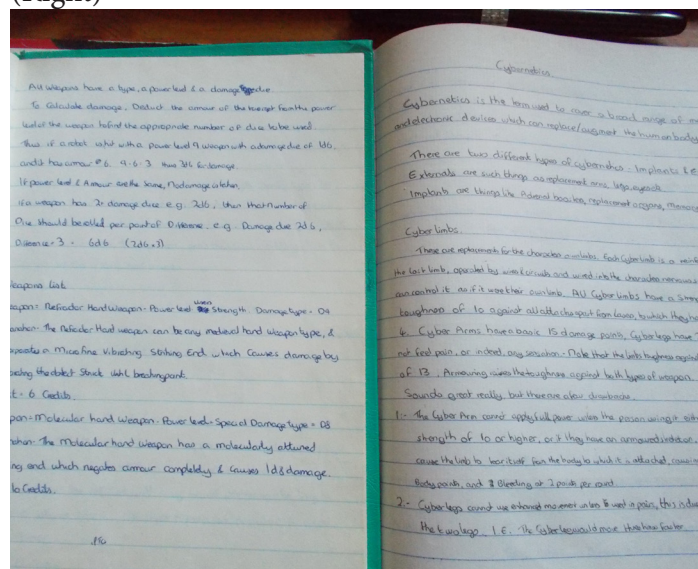 (Right)
All weapons have a type, a power level & a damage dice.
To Calculate damage, Deduct the armour of the target from the power
level of the weapon to find the appropriate number of dice to be used.
Thus if a robot is hit with a power level 9 weapon with a damage dice of 1d6,
and it has armour of 6. 9-6=3 thus 3d6 for damage.
If power level & Armour are the same, No damage is taken.
If a weapon has 2x damage dice e.g. 2d6, then that number of
Dice should be rolled per point of Difference. e.g. Damage dice 2d6,
Difference = 3 = 6d6 (2d6x3)
Weapons List
Weapon = Refractor Hand Weapon - Power level = users Strength. Damage type = D4
The Refractor Hand weapon can be any medieval hand weapon type, &
a Micro fine Vibrating Striking End which Causes damage by
the object Struck until breaking point.
= 6 Credits.
Weapon = Molecular hand weapon - Power level = Special Damage Type = D8
The Molecular hand weapon has a molecularly attuned
end which negates armour completely & causes 1d8 damage.
10 Credits.
Cybernetics
Cybernetics is the term used to cover a broad range of
and electronic devices which can replace/augment the human body
There are two different types of cybernetics - Implants &
Externals are such things as replacement arms, legs, eyes etc
Implants are things like Adrenal boosters, replacement organs,
Cyber limbs.
These are replacements for the characters own limbs. Each Cyber limb is a
the lost limb, operated by and wired into the characters nervous
can control it as if it was their own limb. All Cyber limbs have a
toughness of 10 against all attacks apart from lasers, to which they
6. Cyber Arms have a basic 15 damage points, Cyber legs have
not feel pain, or indeed, any sensation - Note that the limbs toughness against
of 13. Armouring raises the toughness against both types of weapon.
Sounds great really, but there are a few drawbacks.
1.- The Cyber Arm cannot apply full power when the person using it
strength of 10 or higher, or if they have an armoured
cause the limb to tear itself from the body to which it is attached, causing
Body points, and Bleeding at 2 points per round
2.- Cyber legs cannot use enhanced movement unless used in pairs, this is
the two legs. I.E. The Cyber leg would move faster